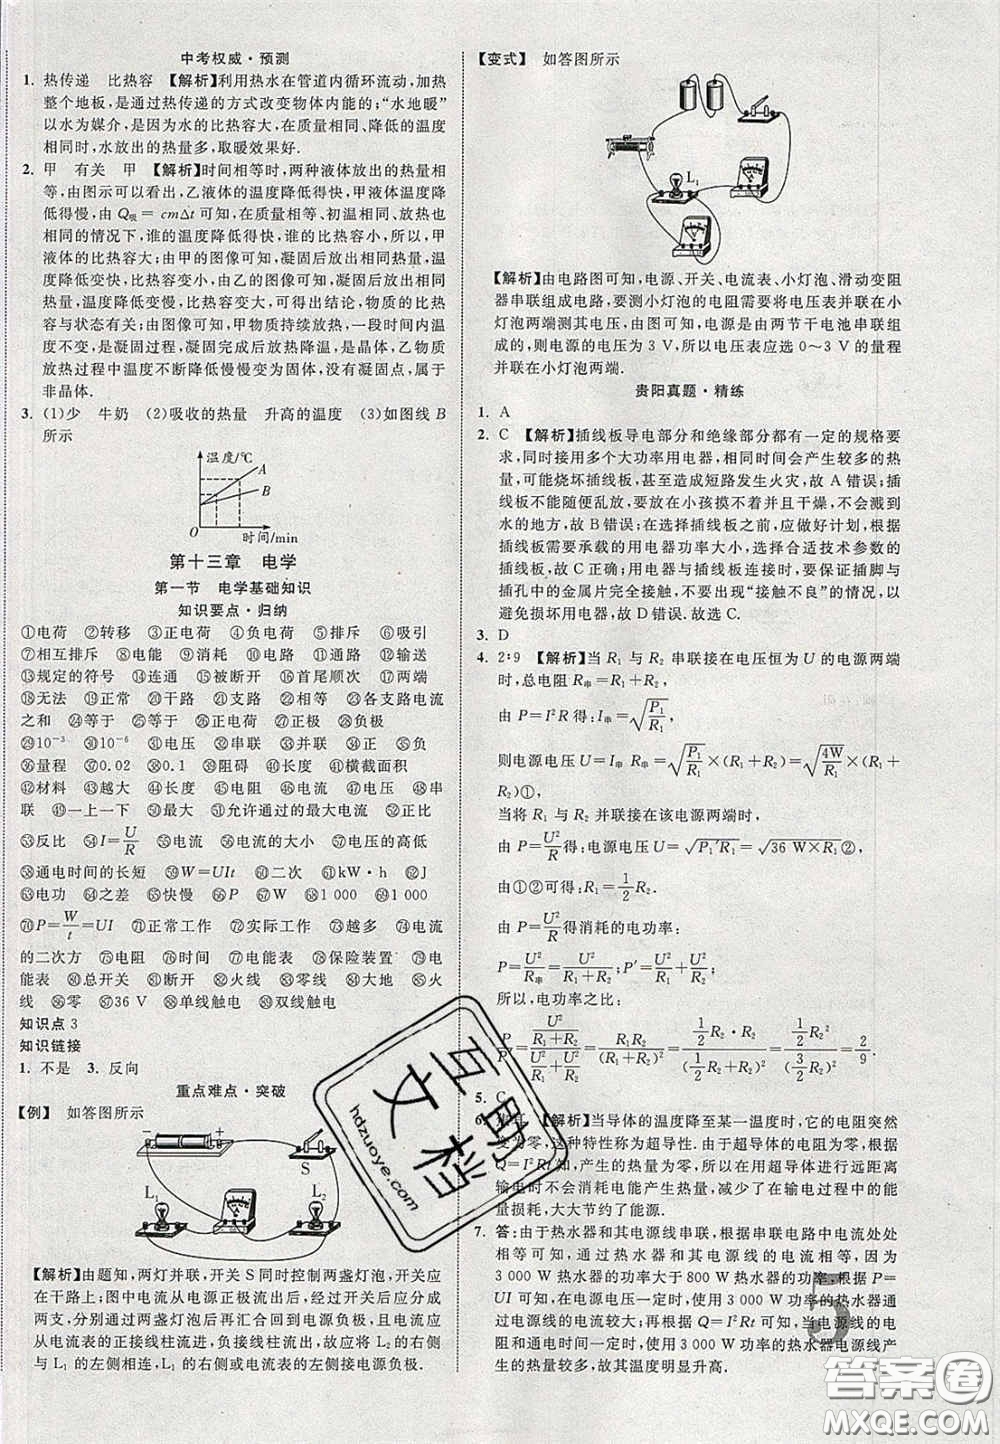 中考权威·预测
1. 热传递　比热容　【解析】利用热水在管道内循环流动,加热
整个地板,是通过热传递的方式改变物体内能的;“水地暖”
以水为媒介,是因为水的比热容大,在质量相同、降低的温度
相同时,水放出的热量多,取暖效果好.
2. 甲　有关　甲　【解析】时间相等时,两种液体放出的热量相
等,由图示可以看出,乙液体的温度降低得快,甲液体温度降
低得慢,由 Q吸＝cmΔt 可知,在质量相等、初温相同、放热也
相同的情况下,谁的温度降低得快,谁的比热容小,所以,甲
液体的比热容大;由甲的图像可知,凝固后放出相同热量,
温度降低变快,比热容变小;由乙的图像可知,凝固后放出相
同热量,温度降低变慢,比热容变大,可得出结论:物质的比
热容与状态有关;由图像可知,甲物质持续放热,一段时间内
温度不变,是凝固过程,凝固完成后放热降温,是晶体,乙物质
放热过程中温度不断降低慢慢变为固体,没有凝固点,属于
非晶体.
3. (1)少　牛奶　(2)吸收的热量　升高的温度　(3)如图线 B
所示
温度/℃
A
B
时间/min
第十三章　电学
第一节　电学基础知识
知识要点·归纳
①电荷　②转移　③正电荷　④负电荷　⑤排斥　⑥吸引
⑦相互排斥　⑧电能　⑨消耗　⑩电路　⑪电流　⑫输送
⑬规定的符号　⑭连通　⑮被断开　⑯首尾顺次　⑰两端
⑱无法　⑲正常　⑳干路　㉑支路　㉒相等　㉓各支路电流
之和　㉔等于　㉕等于　㉖正极　㉗正极　㉘负极
㉙10⁻³　㉚10⁻⁶　㉛电压　㉜串联　㉝并联　㉞正　㉟负
㊱量程　㊲0.02　㊳0.1　㊴阻碍　㊵长度　㊶横截面积
㊷材料　㊸越大　㊹长度　㊺电流　㊻电流　㊼电压　㊽串
联　㊾一上一下　㊿最大　51允许通过的最大电流　52正比
53反比　54I＝U/R　55电流　56电流的大小　57电压的高低
58通电时间的长短　59W＝UIt　60二次　61kW·h　62电流
63电功　64之差　65快慢　66P　67W　681 000　691 000
70P＝W/t＝UI　71正常工作　72实际工作　73越多　74电流
的二次方　75电阻　76时间　77电表　78保险装置　79电表
80总开关　81断开　82火线　83零线　84大地　85火
线　86零　8736 V　88单线触电　89双线触电
知识点 3
知识链接
1. 不是　3. 反向
重点难点·突破
【例】　如答图所示
−
+
S
L₁
L₂
【解析】由题知,两灯并联,开关S同时控制两盏灯泡,开关应
在干路上;图中电流从电源正极流出后,经过开关后应分成
两支,分别通过两盏灯泡后汇合流回负极,通过 L₁ 的电流应
从电流表的正接线柱流进,负接线柱流出,故应将 L₂ 的右侧
与 L₁ 的左侧相连,电流表的右侧直接电源负极.
【变式】　如答图所示
L₁
【解析】由电路图可知,电源、开关、电流表、小灯泡、滑动变阻
器串联组成电路,要测小灯泡的电阻需要将电压表并联在小
灯泡两端测其电压,由图可知,电源是由两节干电池串联组
成的,则电源的电压为 3 V,所以电压表应选 0～3 V 的量程
并联在小灯泡两端.
贵阳真题·精练
1. A
2. C　【解析】插线板导电部分和绝缘部分都有一定的规格要
求,同时接用多个大功率用电器,相同时间会产生较多的热
量,可能烧坏插线板,甚至造成短路发生火灾,故 A 错误;插
线板不能随便乱放,要放在小孩摸不着且干燥,不会洒到
水的地方,故 B 错误;在选择插线板之前,应先计算,根据
插线板需要承载的用电器功率大小,选择合适技术参数的
插线板,故 C 正确;用电器与插线板连接时,要保证插脚与
插孔中的金属片完全接触,不要出现“接触不良”的情况,
以避免损坏用电器,故 D 错误.故选 C.
3. D
4. 2∶9　【解析】当 R₁ 与 R₂ 串联接在电压恒为 U 的电源两端
时,总电阻 R串＝R₁＋R₂,
由 P＝I²R 得:I串＝√(P₁/R₁),
则电源电压 U＝I串 R串＝√(P₁/R₁)×(R₁＋R₂)＝√(4W/R₁)×(R₁＋
R₂)①,
当将 R₁ 与 R₂ 并联接在该电源两端时,
由 P＝U²/R 得:电源电压 U＝√(P₁′R₁)＝√(36 W×R₁)②,
由①②可得:R₁＝1/2 R₂.
由 P＝U²/R 得消耗的电功率:
P＝U²/R串＝U²/(R₁＋R₂);P′＝U²/R₁＋U²/R₂,
所以,电功率之比:
P/P′＝(U²/(R₁＋R₂))/(U²/R₁＋U²/R₂)＝R₁R₂/(R₁＋R₂)²＝(1/2 R₂·R₂)/(1/2 R₂＋R₂)²＝(1/2 R₂²)/(3/2 R₂)²＝2/9.
5. C
6. 【解析】当导体的温度降至某一温度时,它的电阻突然
变为零,这种特性称为超导性.由于超导体的电阻为零,根据
Q＝I²Rt 知,产生的热量为零,因此,用超导体进行远距离
输电时不会消耗电能产生热量,减少了在输电过程中的能
量损耗,大大节约了能源.
7. 答:由于热水器和其电源线串联,根据串联电路中电流处处
相等可知,通过热水器和其电源线的电流相等,因为
3 000 W 热水器的功率大于 800 W 热水器的功率,根据 P＝
UI 可知,在电源电压一定时,使用 3 000 W 的热水器时,通
过电源线的电流较大;再根据 Q＝I²Rt 可知,在电源线的电
阻和通电时间一定时,使用 3 000 W 的热水器时电源线产
生的热量较多,故其温度明显升高.
5
互助文档
hdzuoye.com
答案圈
MXQE.COM